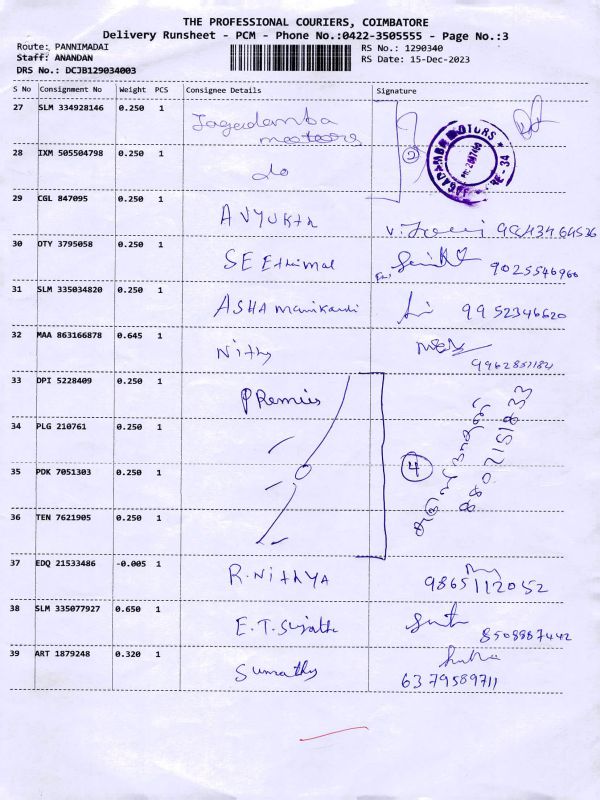 THE PROFESSIONAL COURIERS, COIMBATORE
Delivery Runsheet - PCM - Phone No.:0422-3505555 - Page No.:3
Route: PANNIMADAI RS No.: 1290340
Staff: ANANDAN RS Date: 15-Dec-2023
DRS No.: DCJB129034003
S No Consignment No Weight PCS Consignee Details Signature
27 SLM 334928146 0.250 1 Jagadamba
motors
28 IXM 505504798 0.250 1 do 2
29 CGL 847095 0.250 1 AVYUKth
30 OTY 3795058 0.250 1 SE Ethimal 9025546966
31 SLM 335034820 0.250 1 ASHA Manikandi 9952346620
32 MAA 863166878 0.645 1 Nithy
9962831184
33 DPI 5228409 0.250 1 PRemies
34 PLG 210761 0.250 1
35 PDK 7051303 0.250 1 4
36 TEN 7621905 0.250 1
8807215183
37 EDQ 21533486 -0.005 1 R.NithYA
9865112052
38 SLM 335077927 0.650 1 E.T.Sujath
8508867442
39 ART 1879248 0.320 1 Sumathy
6379589711